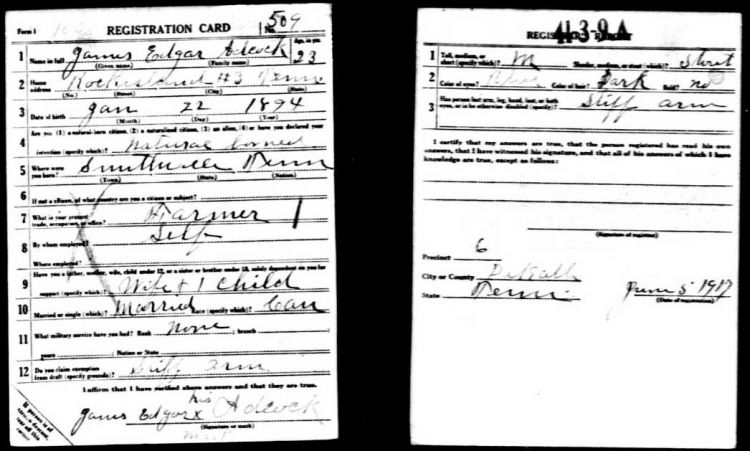 Form 1 REGISTRATION CARD No. 509
1 Name in full James Edgar Adcock Age, in yrs. 23
(Given name) (Family name)
2 Home address #3 Tenn
(No.) (Street) (City) (State)
3 Date of birth Jan 22 1894
(Month) (Day) (Year)
4 Are you (1) a natural-born citizen, (2) a naturalized citizen, (3) an alien, (4) or have you declared your
intention (specify which)? Natural borned
5 Where were you born? Smithville Tenn
(Town) (State) (Nation)
6 If not a citizen, of what country are you a citizen or subject?
7 What is your present trade, occupation, or office? Farmer
8 By whom employed? Self
Where employed?
9 Have you a father, mother, wife, child under 12, or a sister or brother under 12, solely dependent on you for
support (specify which)? Wife + 1 child
10 Married or single (which)? Married Race (specify which)? Cau
11 What military service have you had? Rank none ; branch
years ; Nation or State
12 Do you claim exemption from draft (specify grounds)? Stiff arm
I affirm that I have verified above answers and that they are true.
his
James Edgar x Adcock
(Signature or mark)
If person is of African descent, tear off this corner
4139A
REGISTRAR'S REPORT
1 Tall, medium, or short (specify which)? M Slender, medium, or stout (which)? Stout
2 Color of eyes? Blue Color of hair? Dark Bald? no
3 Has person lost arm, leg, hand, foot, or both eyes, or is he otherwise disabled (specify)? Stiff arm
I certify that my answers are true, that the person registered has read his own
answers, that I have witnessed his signature, and that all of his answers of which I have
knowledge are true, except as follows:
(Signature of registrar)
Precinct 6
City or County DeKalb
State Tenn June 5 1917
(Date of registration)